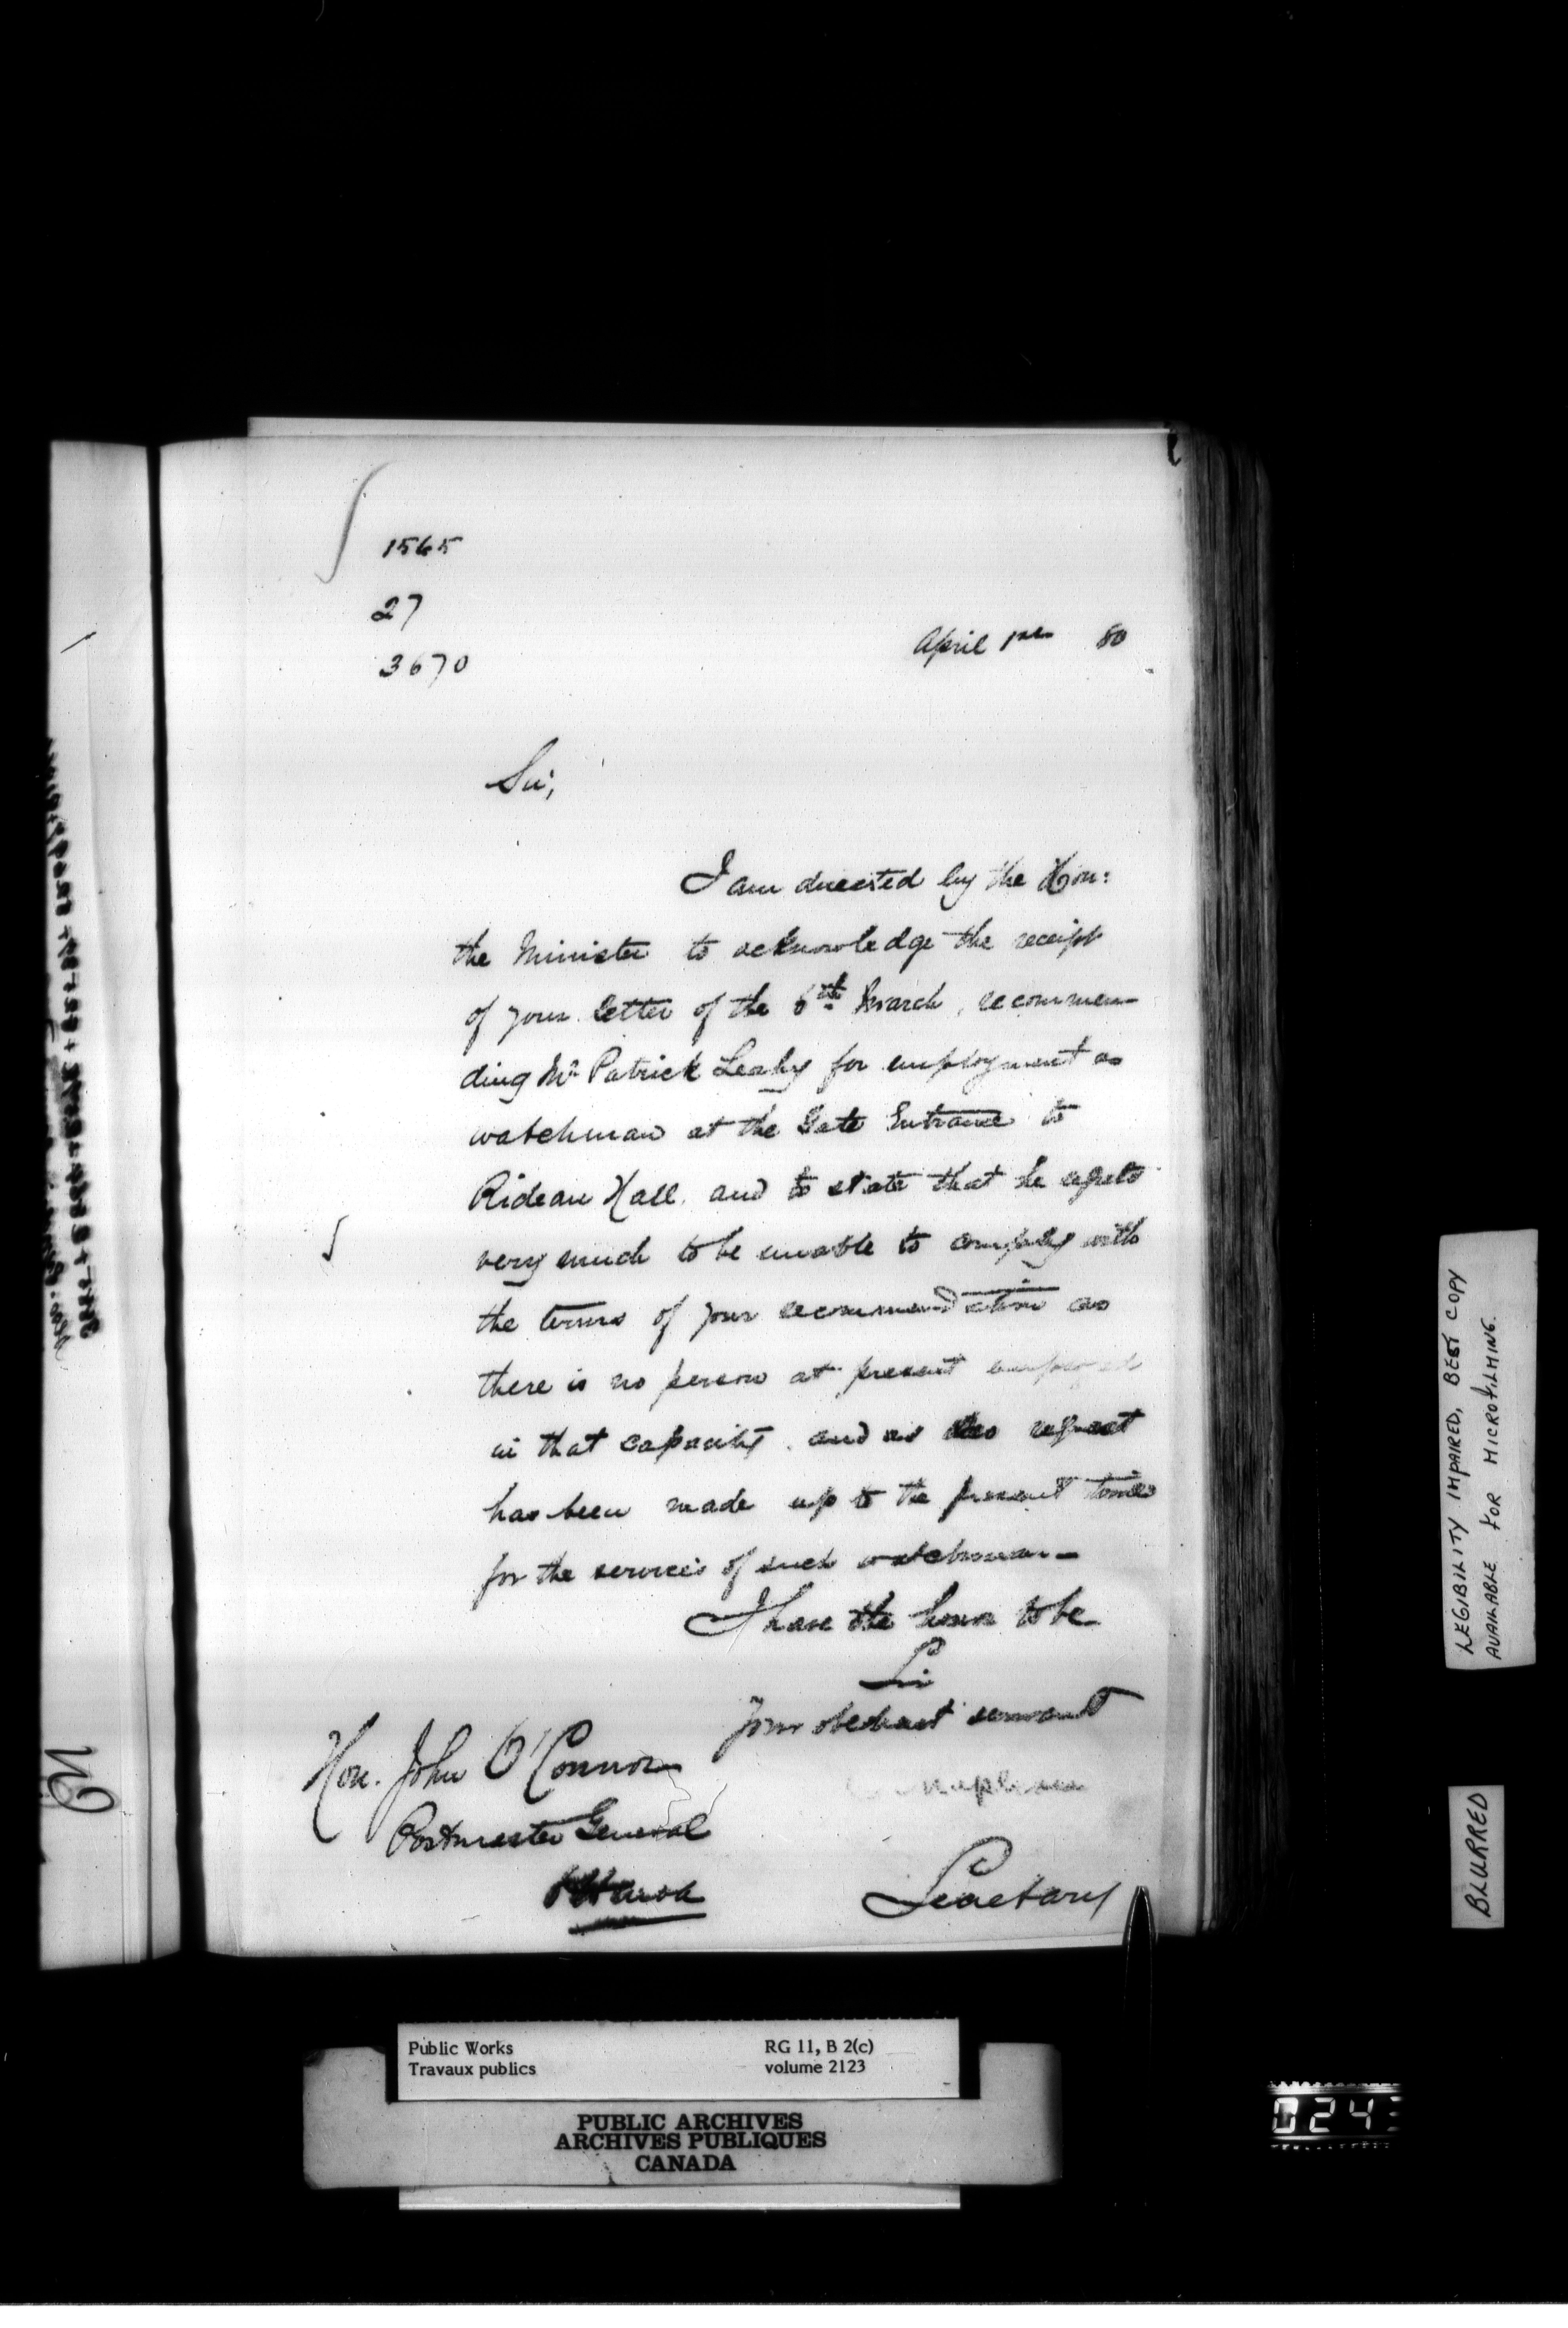 1565
27
3670
April 1st 80
Sir,
I am directed by the Hon:
the Minister to acknowledge the receipt
of your letter of the 6th March, recommen-
ding Mr Patrick Leahy for employment as
watchman at the Gate Entrance to
Rideau Hall, and to state that he regrets
very much to be unable to comply with
the terms of your recommendation as
there is no person at present employed
in that capacity, and as no request
has been made up to the present time
for the services of such watchman-
I have the honor to be
Sir
Your obedient servant
Hon. John O'Connor
Postmaster General
Ottawa
Secretary
Public Works
Travaux publics
RG 11, B 2(c)
volume 2123
PUBLIC ARCHIVES
ARCHIVES PUBLIQUES
CANADA
LEGIBILITY IMPAIRED, BEST COPY
AVAILABLE FOR MICROFILMING.
BLURRED
024